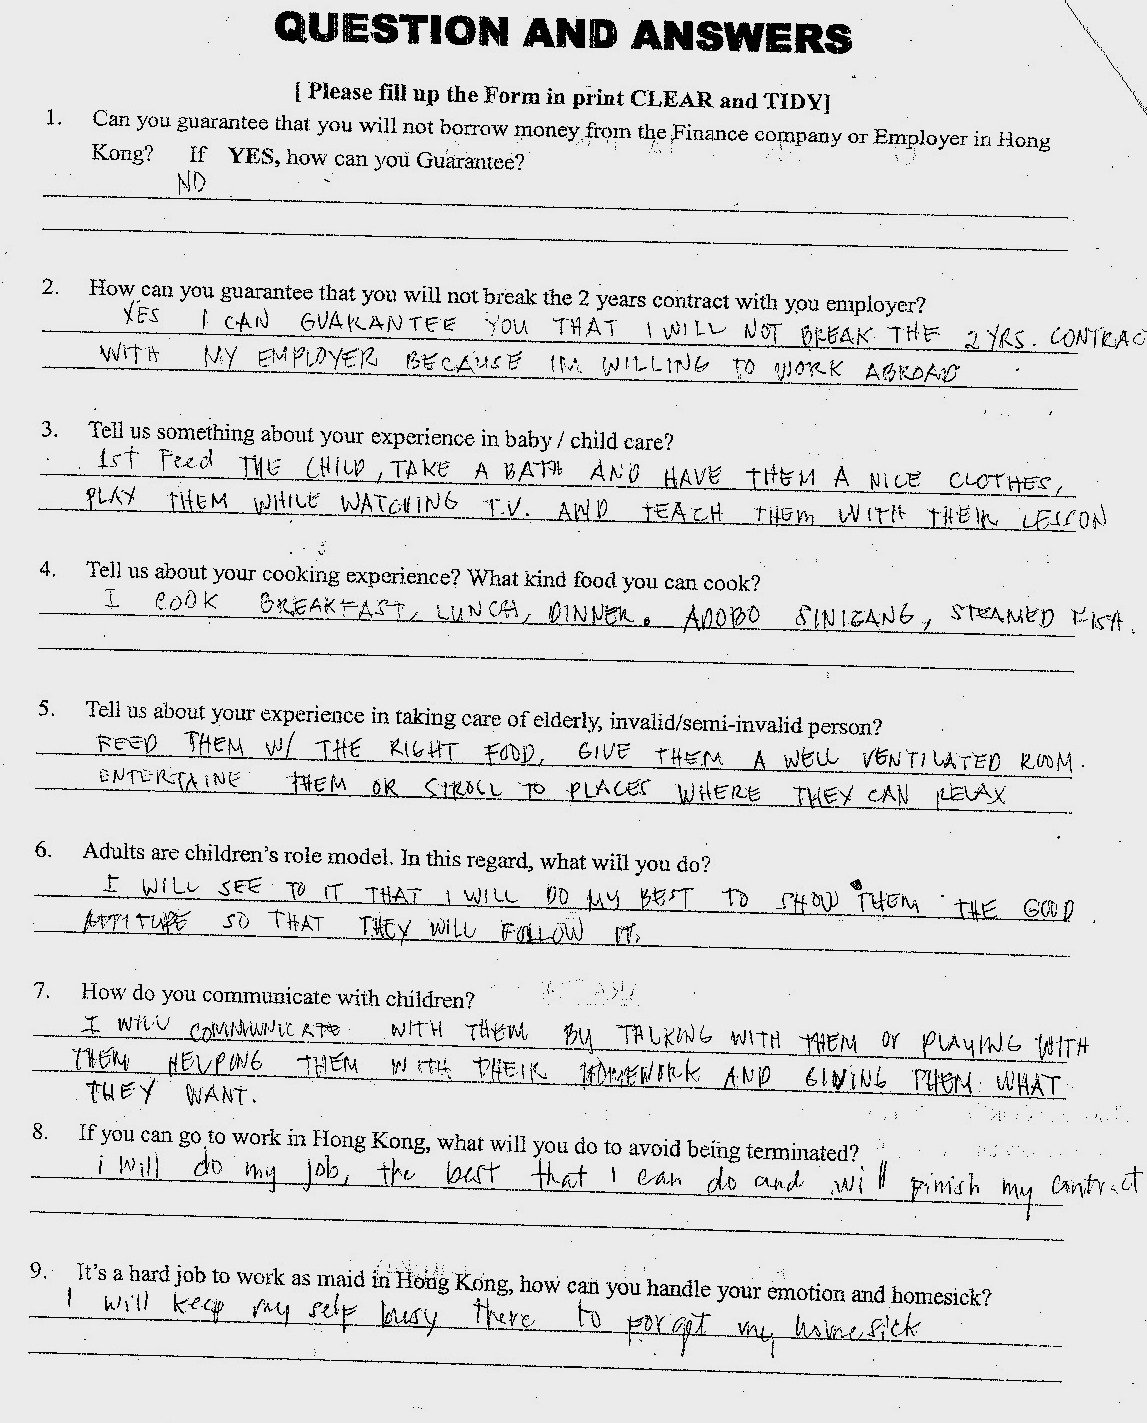 QUESTION AND ANSWERS
[ Please fill up the Form in print CLEAR and TIDY]
1. Can you guarantee that you will not borrow money from the Finance company or Employer in Hong
Kong? If YES, how can you Guarantee?
NO
2. How can you guarantee that you will not break the 2 years contract with you employer?
YES I CAN GUARANTEE YOU THAT I WILL NOT BREAK THE 2 YRS. CONTRAC
WITH MY EMPLOYER BECAUSE IM WILLING TO WORK ABROAD
3. Tell us something about your experience in baby / child care?
1st Feed THE CHILD, TAKE A BATH AND HAVE THEM A NICE CLOTHES,
PLAY THEM WHILE WATCHING T.V. AND TEACH THEM WITH THEIR LESSON
4. Tell us about your cooking experience? What kind food you can cook?
I COOK BREAKFAST, LUNCH, DINNER. ADOBO SINIGANG, STEAMED FISH.
5. Tell us about your experience in taking care of elderly, invalid/semi-invalid person?
FEED THEM W/ THE RIGHT FOOD, GIVE THEM A WELL VENTILATED ROOM.
ENTERTAINE THEM OR STROLL TO PLACES WHERE THEY CAN RELAX
6. Adults are children's role model. In this regard, what will you do?
I WILL SEE TO IT THAT I WILL DO MY BEST TO SHOW THEM THE GOOD
ATTITUDE SO THAT THEY WILL FOLLOW IT.
7. How do you communicate with children?
I WILL COMMUNICATE WITH THEM BY TALKING WITH THEM OR PLAYING WITH
THEM HELPING THEM WITH THEIR HOMEWORK AND GIVING THEM WHAT
THEY WANT.
8. If you can go to work in Hong Kong, what will you do to avoid being terminated?
i will do my job, the best that I can do and will finish my contract
9. It's a hard job to work as maid in Hong Kong, how can you handle your emotion and homesick?
I will keep my self busy there to forget my homesick